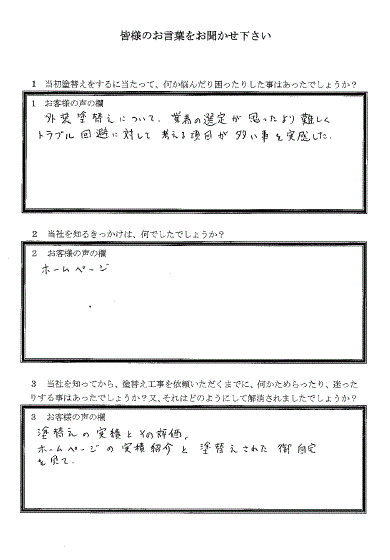 皆様のお言葉をお聞かせ下さい
1 当初塗替えをするに当たって、何か悩んだり困ったりした事はあったでしょうか?
1 お客様の声の欄
外装塗替えについて、業者の選定が思ったより難しく
トラブル回避に対して考える項目が多い事を実感した.
2 当社を知るきっかけは、何でしたでしょうか?
2 お客様の声の欄
ホームページ
3 当社を知ってから、塗替え工事を依頼いただくまでに、何かためらったり、迷った
りする事はあったでしょうか?又、それはどのようにして解消されましたでしょうか?
3 お客様の声の欄
塗替えの実積とその評価,
ホームページの実積紹介と塗替えされた御自宅
を見て.